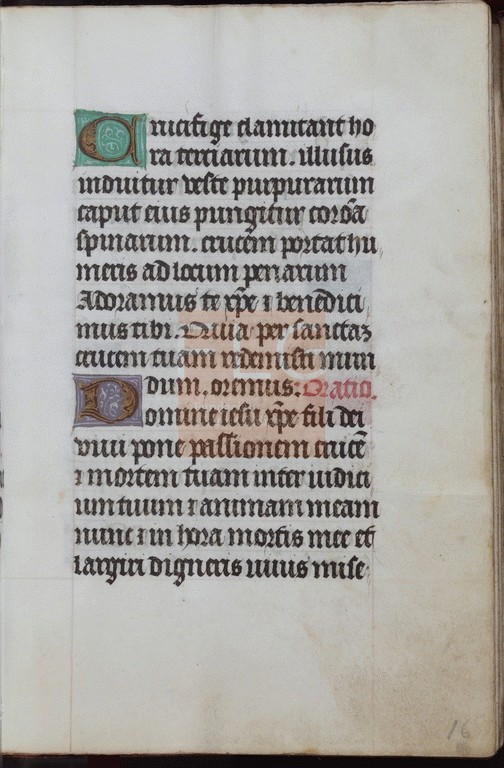 Crucifige clamitant ho
ra terciarum. illusus
induitur veste purpurarum
caput eius pungitur corōa
spinarum. crucem portat hu
meris ad locum penarum
Adoramus te xp̄e ⁊ benedici
mus tibi. Quia per sanctaʒ
crucem tuam redemisti mun
dum. oremus: Oratio.
Domine iesu xp̄e fili dei
viui pone passionem crucē
⁊ mortem tuam inter iudici
um tuum ⁊ animam meam
nunc ⁊ in hora mortis mee et
largiri digneris viuis mise
16